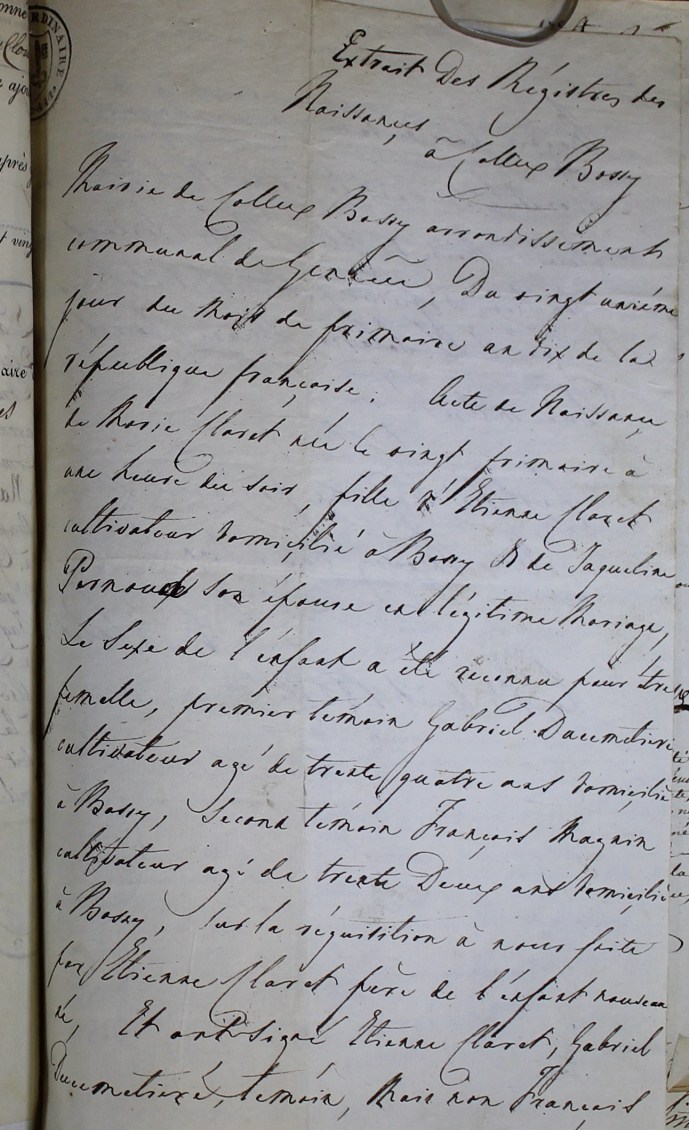 Extrait Des Régistres des
Naissances,
à Collex Bossy
Mairie de Collex Bossy arrondissement
communal de Genève, Du vingt unième
jour du Mois de frimaire an dix de la
république française. Acte de Naissance
de Marie Claret née le vingt frimaire à
une heure du soir, fille d'Etienne Claret
cultivateur domicilié à Bossy & de Jaqueline
Pernoud son épouse en légitime Mariage,
Le Sexe de l'enfant a été reconnu pour être
femelle, premier témoin Gabriel Ducimetiere
cultivateur agé de trente quatre ans domicilié
à Bossy, Second témoin François Magnin
cultivateur agé de trente Deux ans domicilié
à Bossy, sur la réquisition à nous faite
par Etienne Claret père de l'enfant nouveau
né, Et ont Signé Etienne Claret, Gabriel
Ducimetiere, témoin, Mais non François